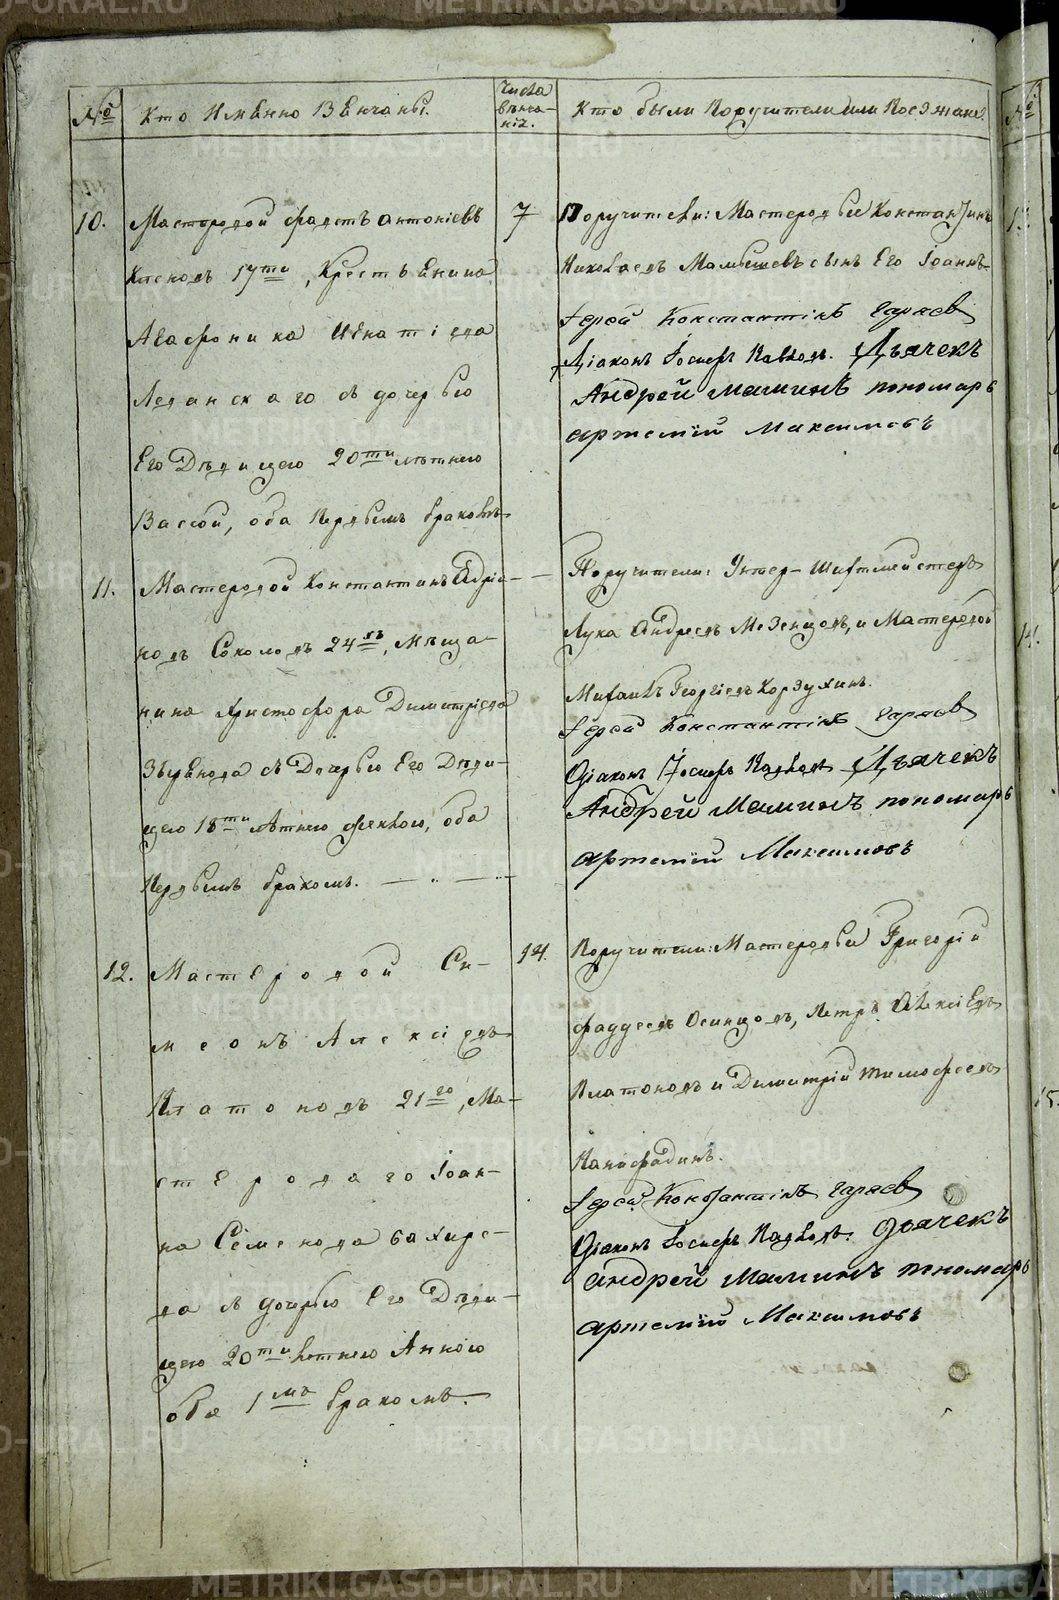 №
Кто Именно Вѣнчаны.
Числа
вѣнча-
нія.
Кто были Поручители или Поезжане.
10.
Мастеровой Фадетъ Антоніевъ
17ти, Крестьянина
Игнатіева
съ дочерью
Его Дѣвицею 20ти лѣтнею
Вассой, оба первымъ бракомъ
7
Поручители: Мастеровые Константинъ
Николаевъ Малышевъ сынъ Его Іоаннъ
Іерей Константинъ
Діаконъ Іосифъ Дьячекъ
Андрей Маминъ пономарь
Артемій Максимовъ
11.
Мастеровой Константинъ Адріа-
новъ Соколовъ 24хъ, Мѣща-
нина Христофора Димитріева
съ Дочерью Его Дѣви-
цею 18ти лѣтнею Феклою, оба
Первымъ бракомъ.
Поручители: Унтер-Шихтмейстеръ
Лука Андреевъ Мезенцовъ, и Мастеровой
Михаилъ Георгіевъ Корзухинъ.
Іерей Константинъ
Діаконъ Іосифъ Дьячекъ
Андрей Маминъ пономарь
Артемій Максимовъ
12.
Мастеровой Си-
меонъ Алексіевъ
Платоновъ 21го, Ма-
стероваго Іоан-
на Семенова Бахире-
ва съ дочерью Его Дѣви-
цею 20ти летнею Анною
оба 1мъ бракомъ.
14.
Поручители: Мастеровые Григорій
Фаддеевъ Осинцовъ, Петръ Алексіевъ
Платоновъ и Димитрій Тимофеевъ
Панафадинъ.
Іерей Константинъ
Діаконъ Іосифъ Дьячекъ
Андрей Маминъ пономарь
Артемій Максимовъ
METRIKI.GASO-URAL.RU